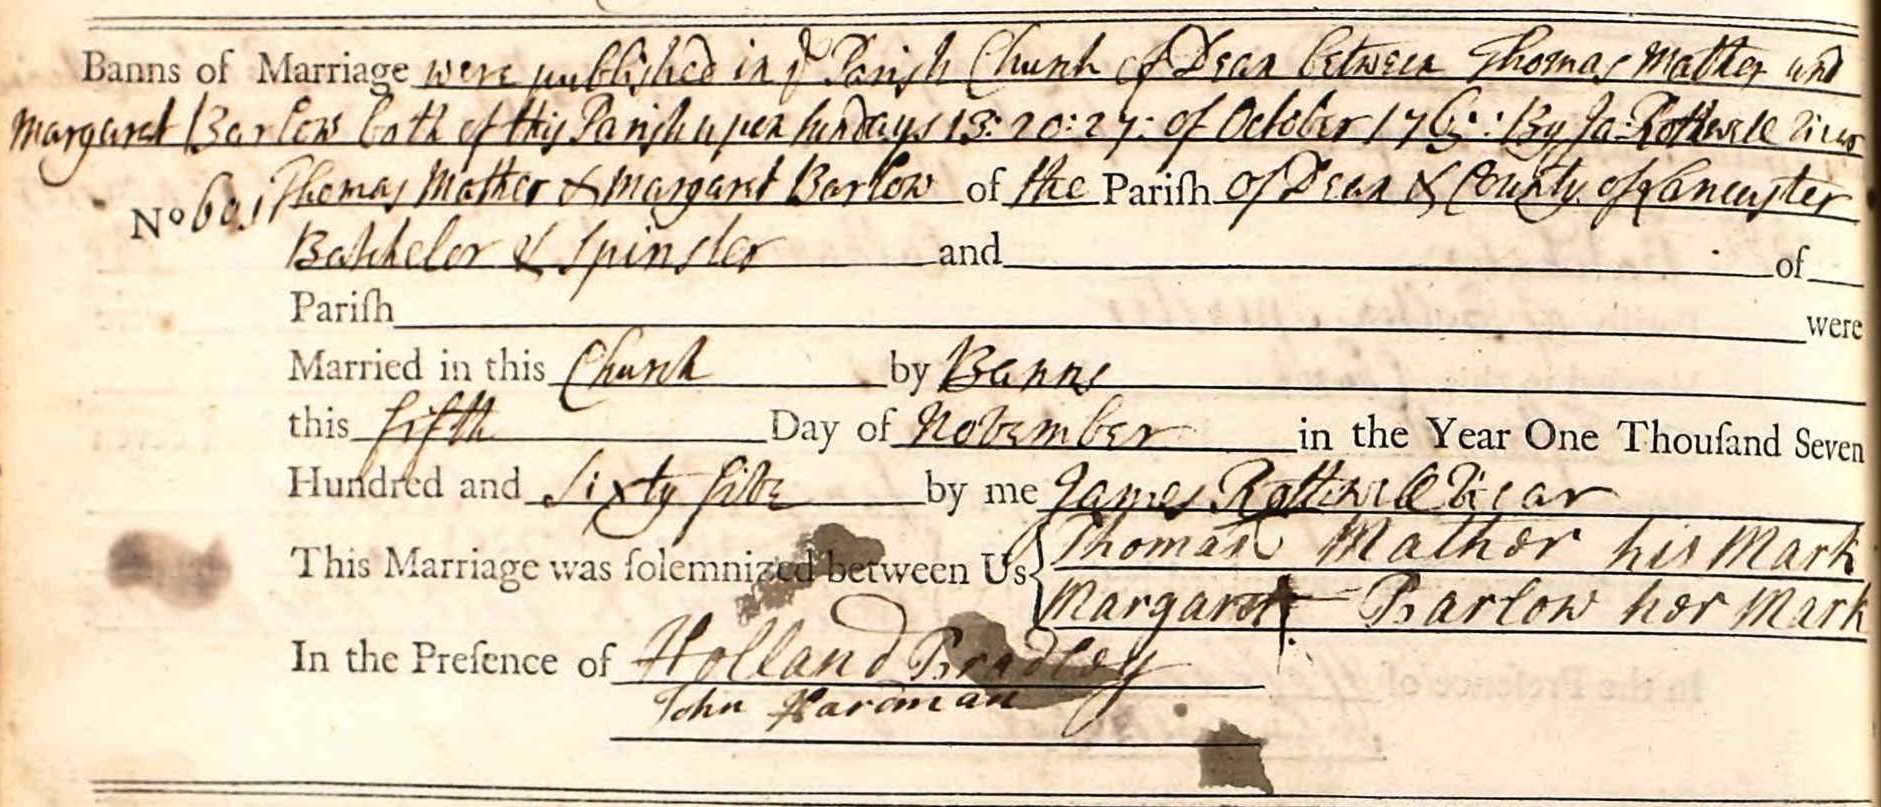 Banns of Marriage were published in ye Parish Church of Dean between Thomas Mather and
Margaret Barlow both of this Parish upon sundays 13: 20: 27: of October 1765: By Ja: Rothwell Vicar
No 601 Thomas Mather & Margaret Barlow of the Pariſh of Dean & County of Lancaster
Batchelor & Spinster and of
Pariſh were
Married in this Church by Banns
this fifth Day of November in the Year One Thouſand Seven
Hundred and Sixty five by me James Rothwell Vicar
This Marriage was ſolemnized between Us { Thomas Mather his Mark
Margaret Barlow her Mark
In the Preſence of Holland Bradley
John Hardman